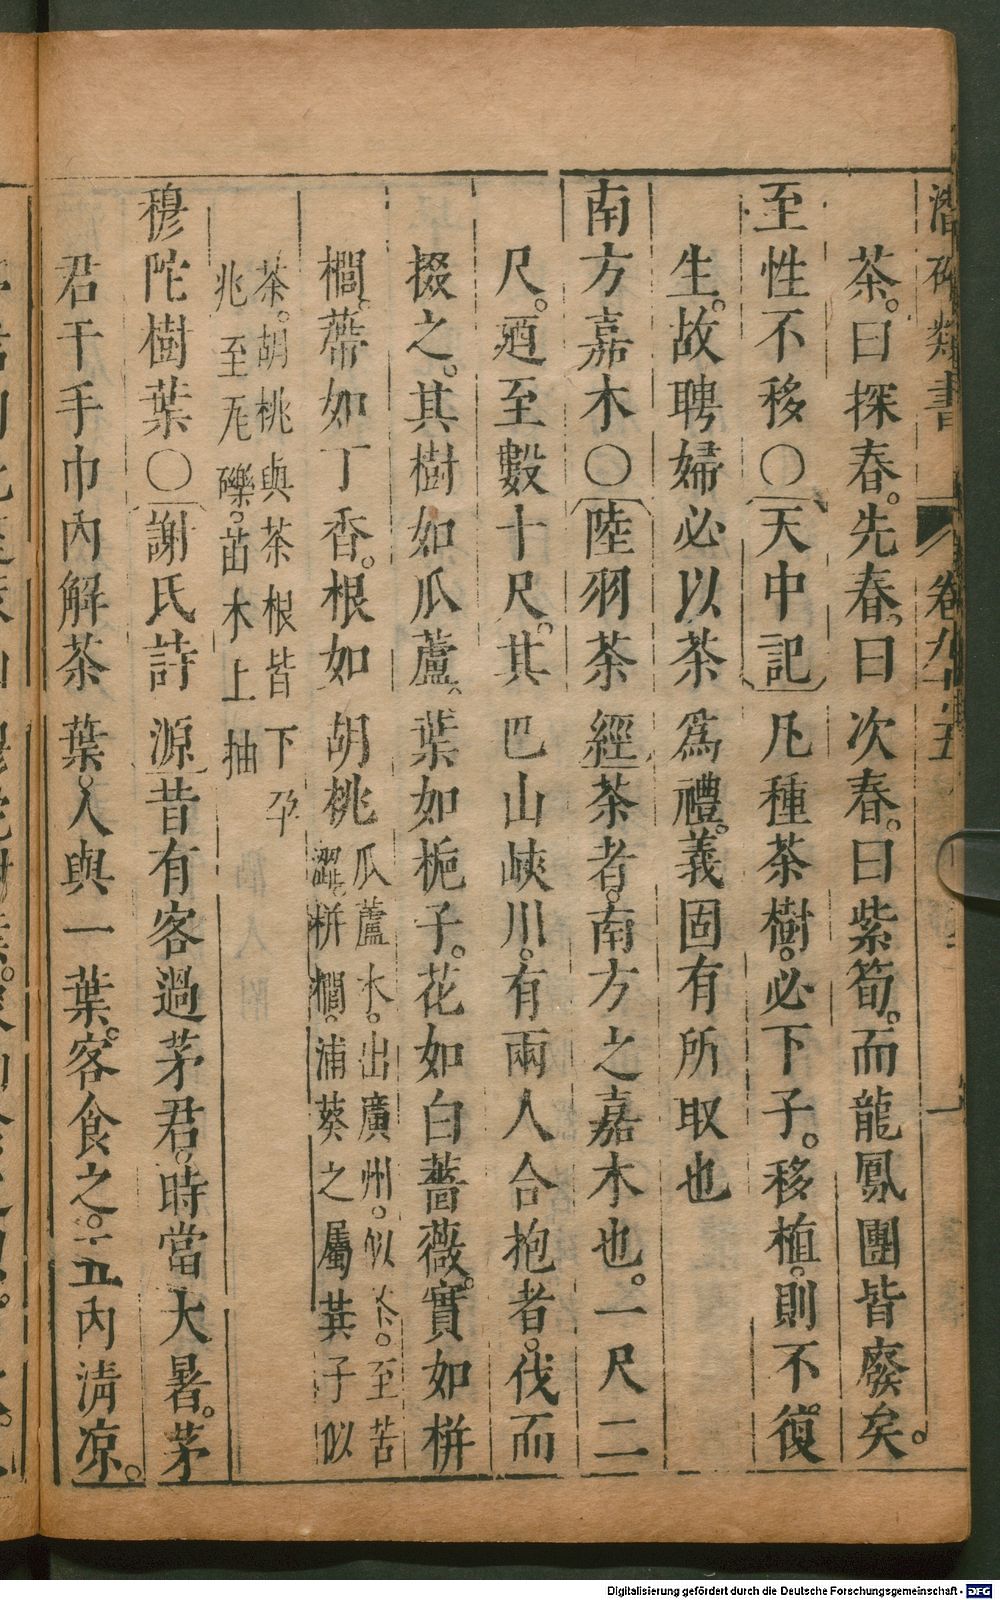 潛確類書 卷九十五
茶。曰探春。先春。曰次春。曰紫筍。而龍鳳團皆廢矣。
至性不移○天中記凡種茶樹。必下子。移植。則不復
生。故聘婦必以茶爲禮。義固有所取也
南方嘉木○陸羽茶經茶者。南方之嘉木也。一尺二
尺。廼至數十尺。其巴山峽川。有兩人合抱者。伐而
掇之。其樹如瓜蘆。葉如梔子。花如白薔薇。實如栟
櫚。蔕如丁香。根如胡桃
瓜蘆木。出廣州。似茶。至苦
澀。栟櫚。蒲葵之屬其子似
茶。胡桃與茶根皆下孕
兆至瓦礫。苗木上抽
穆陀樹葉○謝氏詩源昔有客過茅君。時當大暑。茅
君于手巾內解茶葉。人與一葉。客食之。五內清凉。
Digitalisierung gefördert durch die Deutsche Forschungsgemeinschaft - DFG